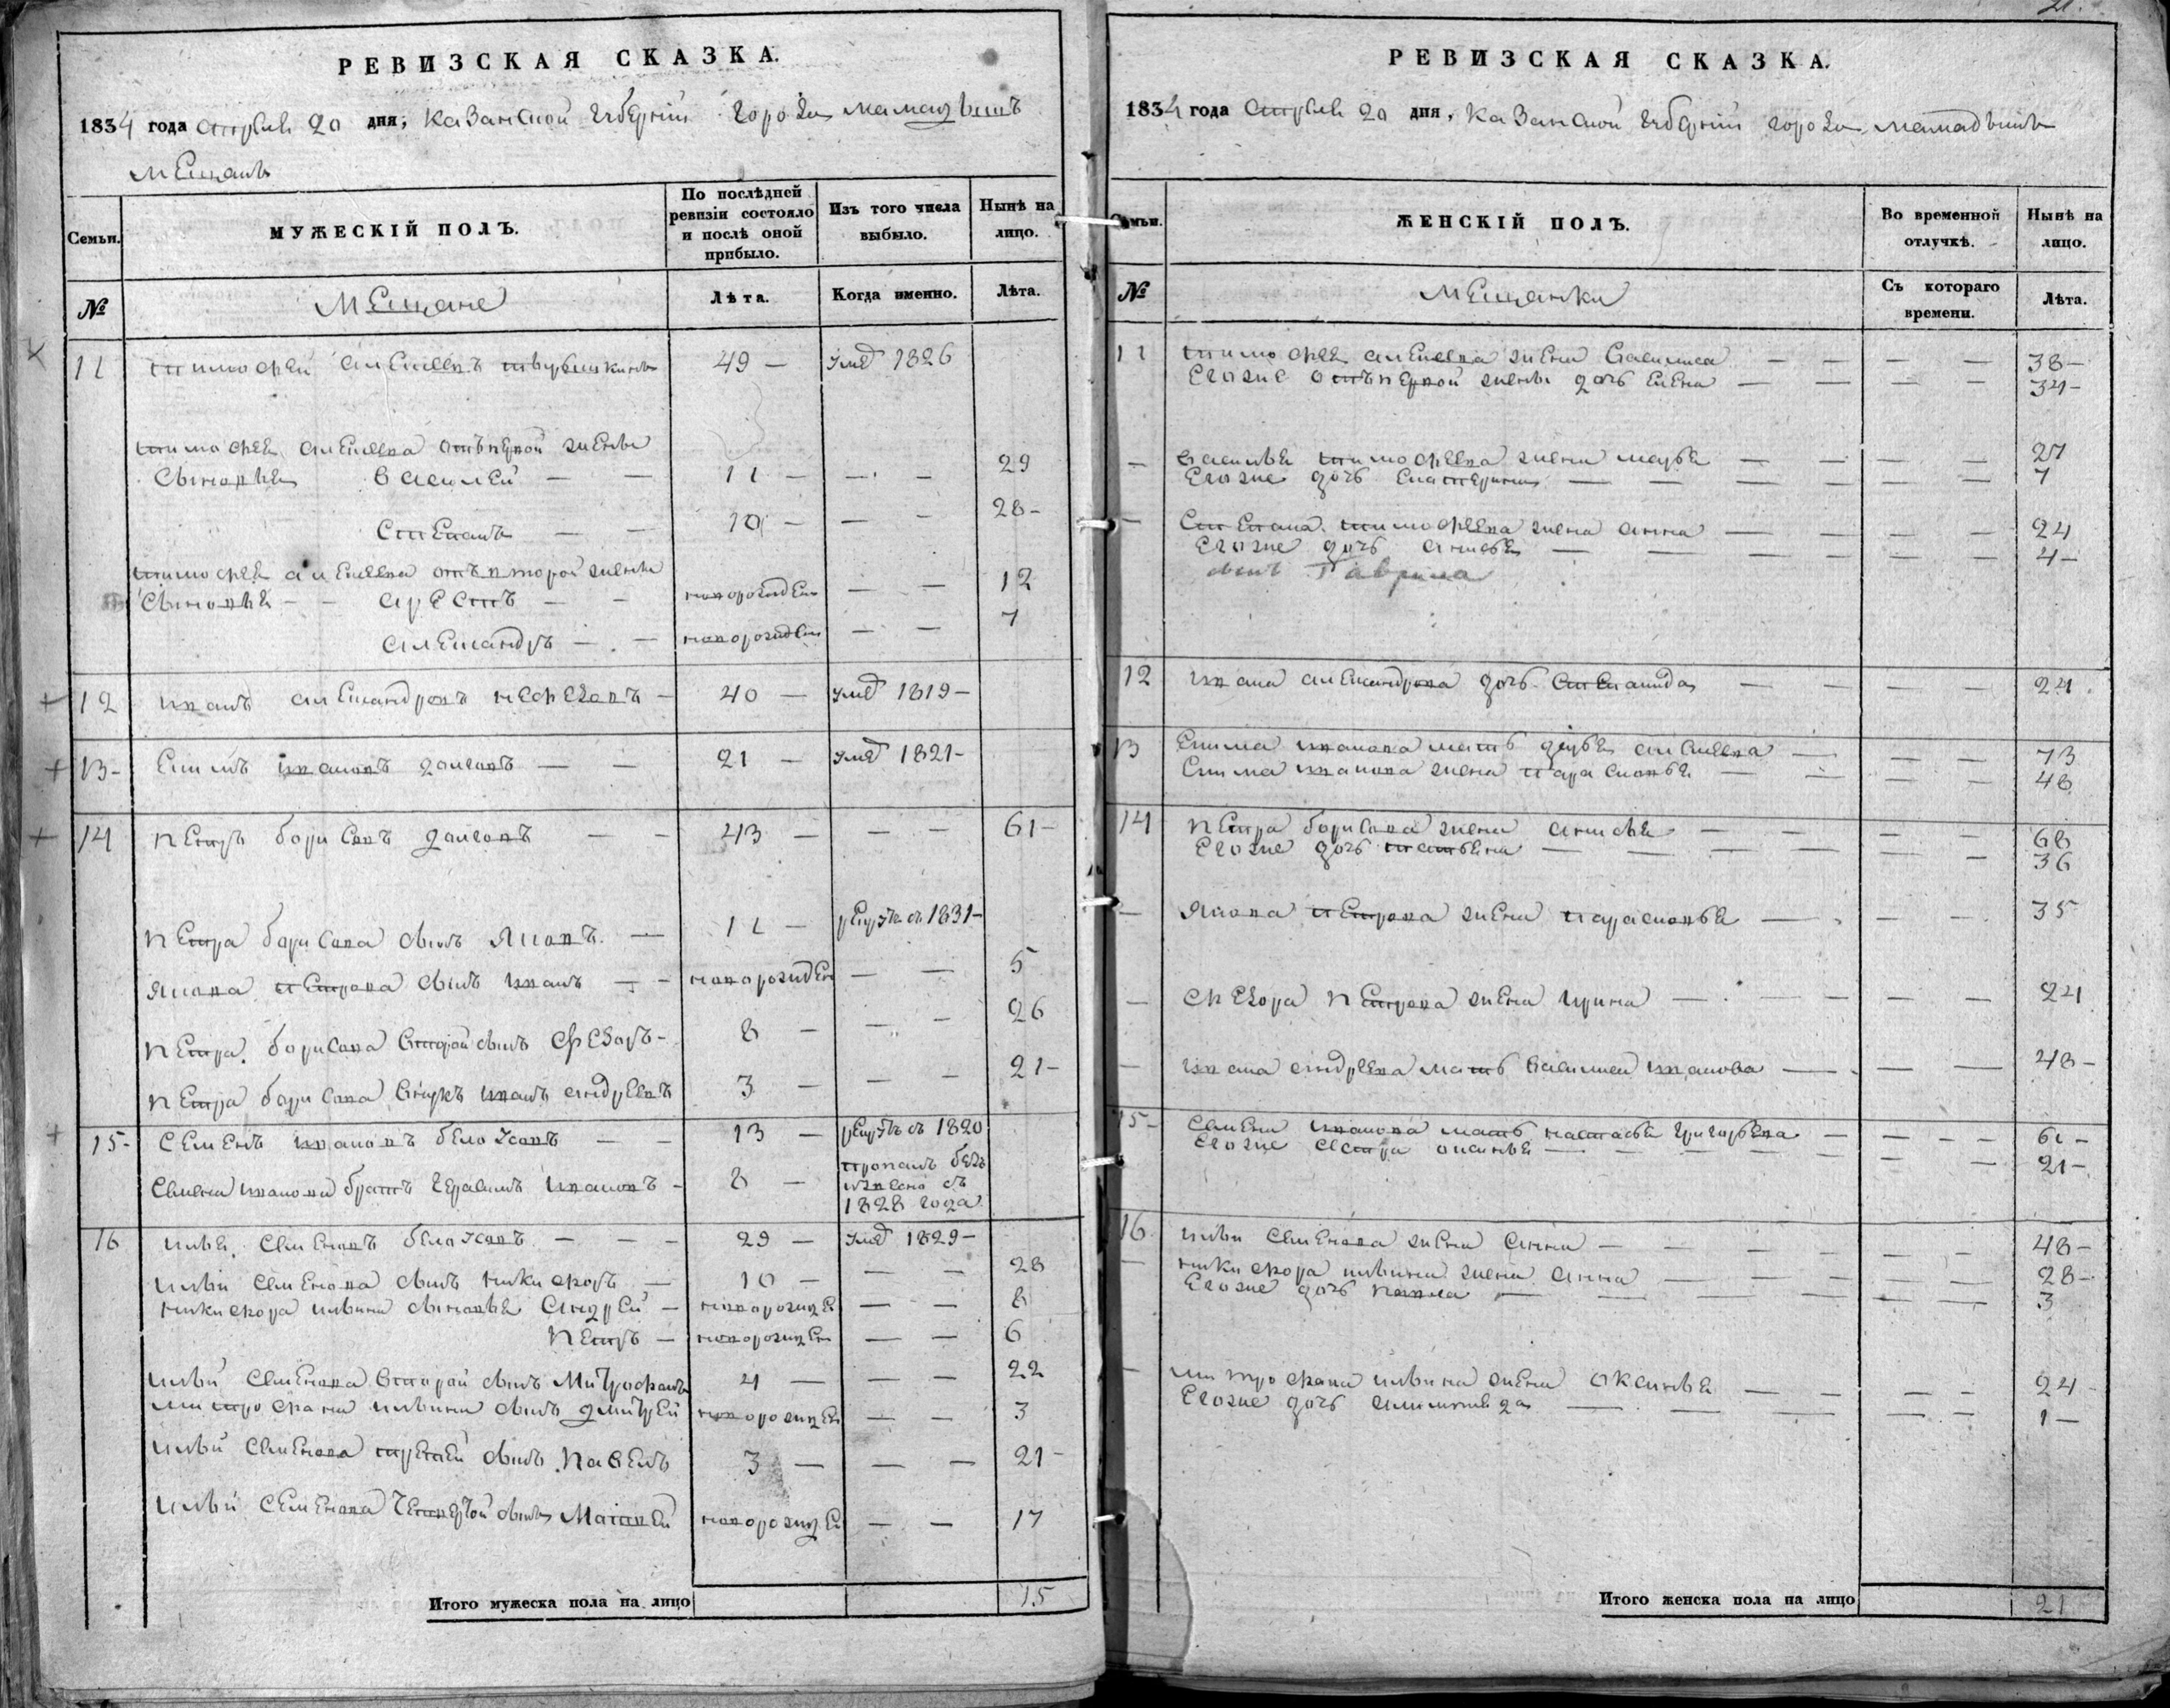 РЕВИЗСКАЯ СКАЗКА.
1834 года апреля 20 дня, Казанской губернии города Мамадышъ
мещанъ
Семьи.
МУЖЕСКІЙ ПОЛЪ.
По послѣдней ревизіи состояло и послѣ оной прибыло.
Изъ того числа выбыло.
Нынѣ на лицо.
№
Мещане
Лѣта.
Когда именно.
Лѣта.
11 тимофей алексеевъ 49 — умѣ 1826
тимофея алексеева отъпервой жены
сыновья василей — — 11 — — — 29
Степанъ — — 10 — — — 28 —
тимофея алексеева отъвторой жены
сыновья — — арестъ — — новорожден — — 12
александръ — — новорожден — — 7
12 иванъ александровъ нефедовъ — 40 — умѣ 1819 —
13 — Екимъ ивановъ долговъ — — 21 — умѣ 1821 —
14 петръ борисовъ долговъ — — 43 — — — 61 —
петра борисова сынъ Яковъ — 11 — рекруты съ 1831 —
Якова петрова сынъ иванъ — — новорожден — — 5
петра борисова второй сынъ Федоръ — 8 — — — 26
петра борисова внукъ иванъ андреевъ 3 — — — 21 —
15 — семенъ ивановъ белоусовъ — — 13 — рекруты съ 1820
семена иванова братъ герасимъ ивановъ — 8 — пропалъ безъ
съ
1828 года
16 илья семеновъ белоусовъ — — — 29 — умѣ 1829 —
ильи семенова сынъ никифоръ — 10 — — — 28
никифора ильина сыновья андрей — новорожде — — 8
петръ — новорожден — — 6
ильи семенова второй сынъ митрофанъ 4 — — — 22
митрофана ильина сынъ дмитрей новорожден — — 3
ильи семенова третей сынъ павелъ 3 — — — 21 —
ильи семенова четвертой сынъ Матвей новорожде — — 17
Итого мужеска пола на лицо 15
РЕВИЗСКАЯ СКАЗКА.
1834 года апреля 20 дня, Казанской губернии города мамадышъ
Семьи.
ЖЕНСКІЙ ПОЛЪ.
Во временной отлучкѣ.
Нынѣ на лицо.
№
Мещанки
Съ котораго времени.
Лѣта.
11 тимофея алексеева жена василиса — — — — 38 —
Егоже отъпервой жены дочь елена — — — — 34 —
— василья тимофеева жена марфа — — — — 27
Егоже дочь екатерина — — — — — 7
— Степана тимофеева жена анна — — — — 24
Егоже дочь анисья — — — — — 4 —
сынъ Гаврила
12 ивана александрова дочь степанида — — — — 24
13 Екима иванова мать дарья алексеева — — — 73
Екима иванова жена парасковья — — — — 48
14 петра борисова жена анисья — — — — 68
Егоже дочь татьяна — — — — — — 36
— Якова петрова жена парасковья — — — 35
— Федора петрова жена ирина — — — — — 24
— ивана андреева мать василиса иванова — — — 48 —
15 — Семена иванова мать настасья григорьева — — — — 61 —
Егоже сестра аксинья — — — — — — 21 —
16 ильи семенова жена анна — — — — — — 48 —
— никифора ильина жена анна — — — — — 28 —
Егоже дочь павла — — — — — — 3
— митрофана ильина жена оксинья — — — — 24 —
Егоже дочь — — — — — 1 —
Итого женска пола на лицо 21